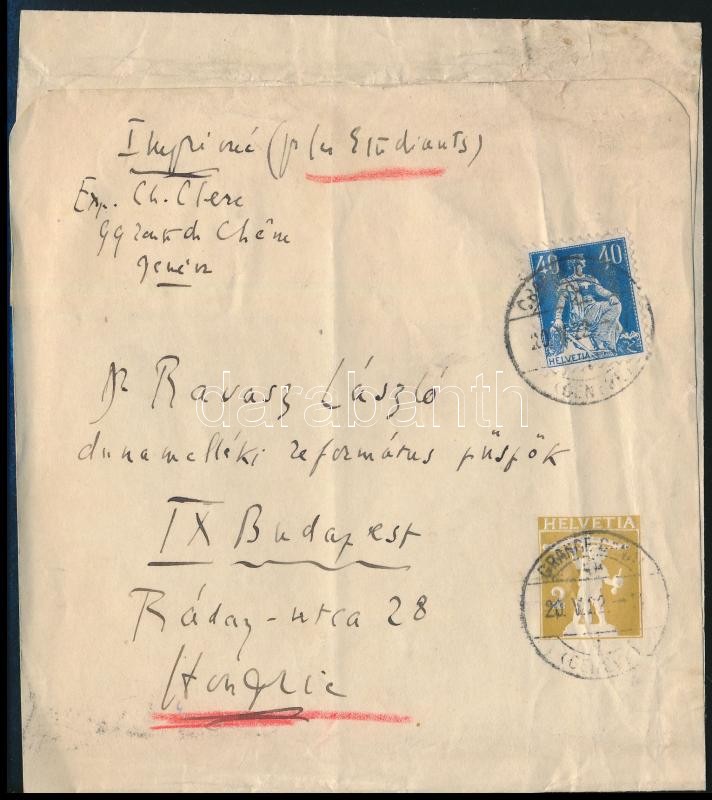 Imprimé (pr les Estudiants)
Exp. Ch. Clerc
99 Chêne
Genève
40 40
HELVETIA
(GENÈVE)
Dr Ravasz László
darabanth
dunamelléki református püspök
IX Budapest
HELVETIA
GRANGE
Ráday-utca 28
20.V.22
(GENÈVE)
Hongrie